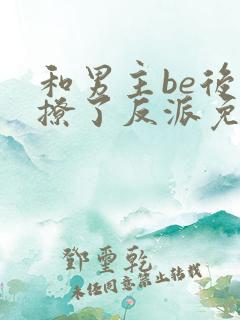 和男主be後
撩了反派免
鄧璽乾
未經同意禁止轉載